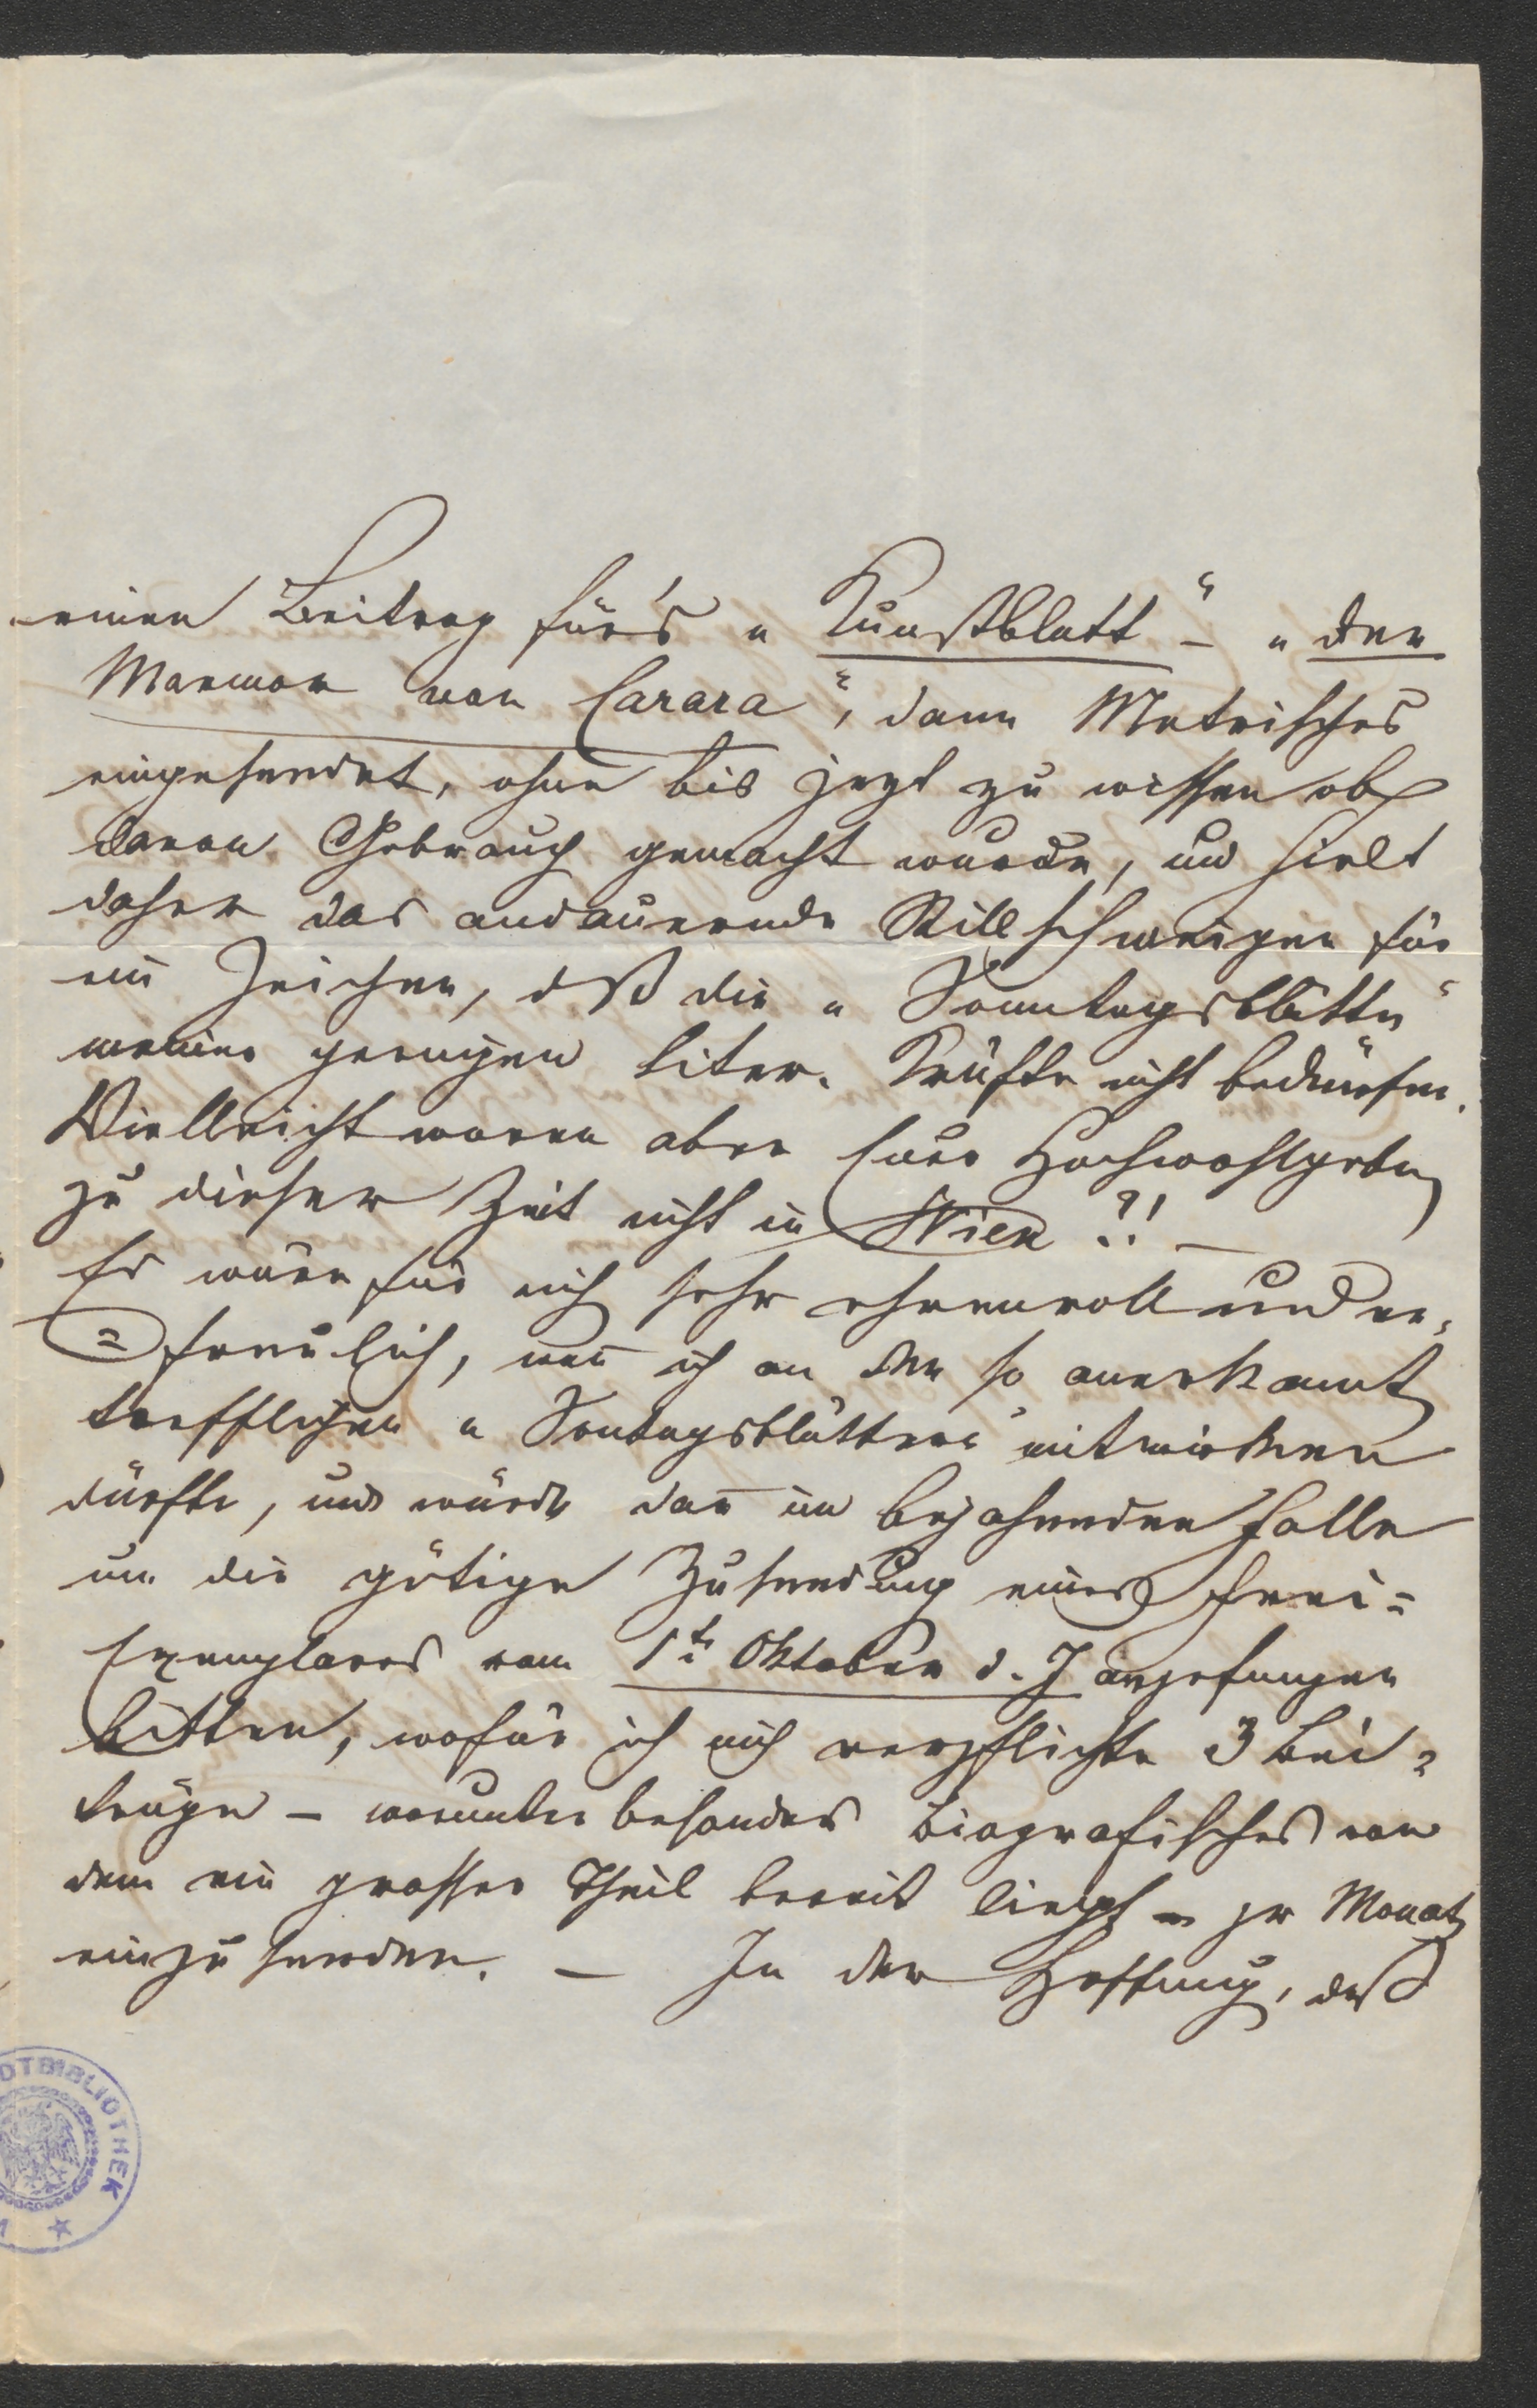 einen Beitrag für's „Kunstblatt“ – „der
Marmor von Carara“, dann Metrisches
eingesendet, ohne bis jezt zu wissen ob
davon Gebrauch gemacht wurde, und hielt
daher das andauernde Stillschweigen für
ein Zeichen, dß die „Sonntagsblätter“
meiner geringen liter. Kräfte nicht bedürfen.
Vielleicht waren aber Euer Hochwohlgeb
zu dieser Zeit nicht in Wien ?! –
Es wäre für mich sehr ehrenvoll und er=
=freulich, weñ ich an den so anerkannt
trefflichen „Sontagsblättern“ mitwirken
dürfte, und würde dañ im bejahenden Falle
um die gütige Zusendung eines Frei=
Exemplares vom 1t Oktober d. J angefangen
bitten, wofür ich mich verpflichte 3 Bei=
träge – worunter besonders biografisches von
dem ein grosser Theil bereits liegt – pr Monat
einzusenden. – In der Hoffnung, daß
DTBIBLIOTHEK